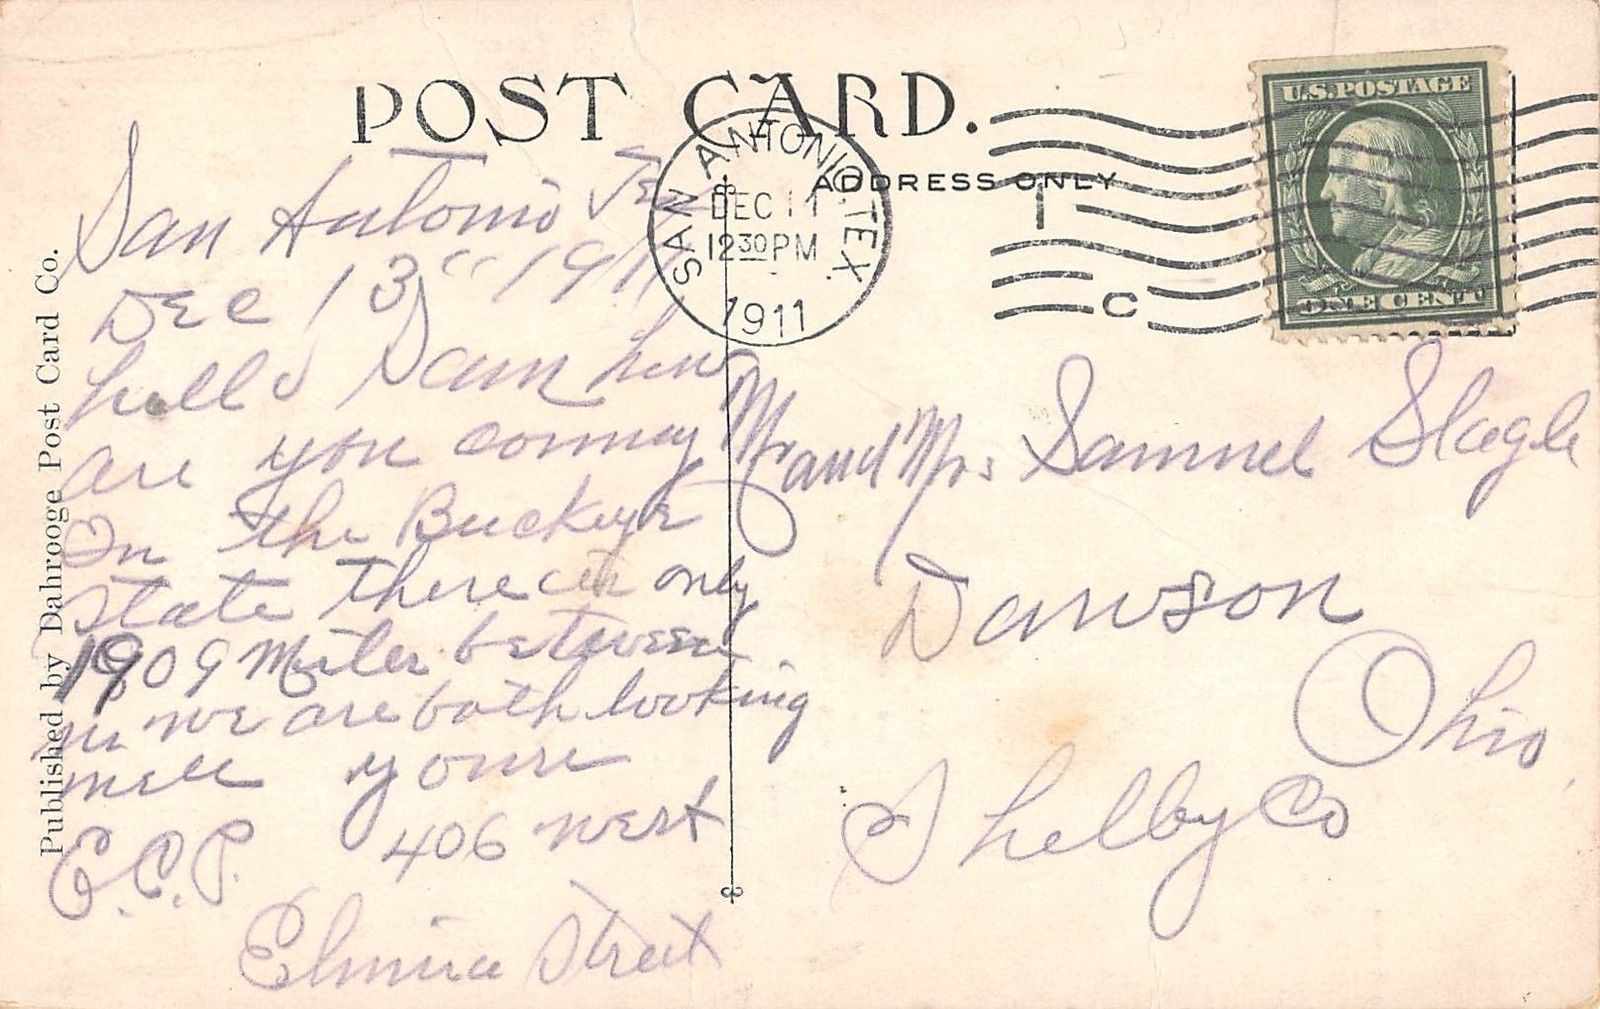 POST CARD.
ADDRESS ONLY
SAN ANTONIO, TEX.
DEC 11
12 30 PM
1911
C
U.S. POSTAGE
ONE CENT
San Antonio Tex
Dec 13" 1911
hello Sam how
are you coming
In the Buckeye
State there only
1909 Miles between
us we are both looking
well yours
E.C.P. 406 West
Elmira Street
Mr and Mrs Samuel Slagle
Dawson
Ohio
Shelby Co
Published by Dahrooge Post Card Co.